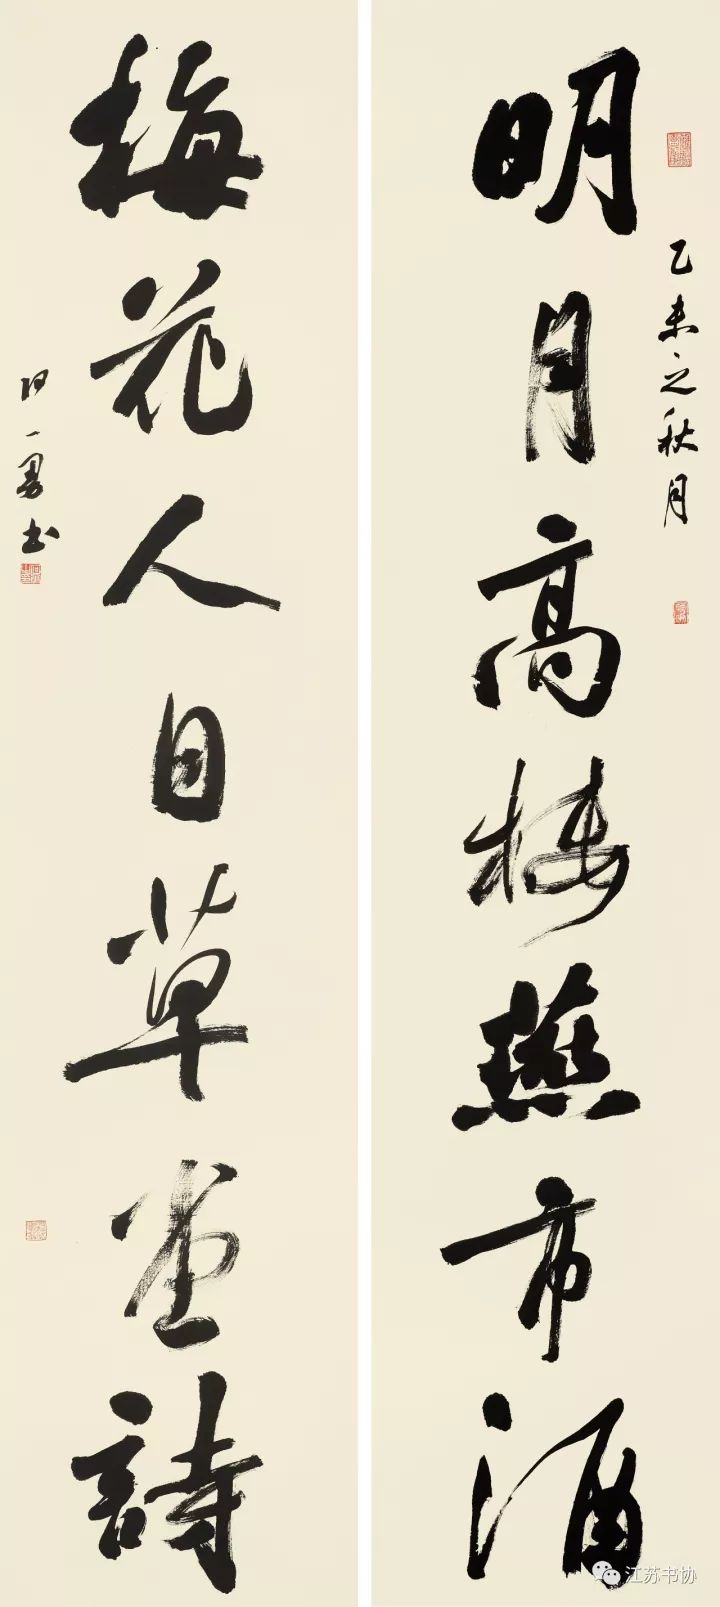 乙未之秋月
明月高樓燕市酒
梅花人日草堂詩
一勇书
江苏书协